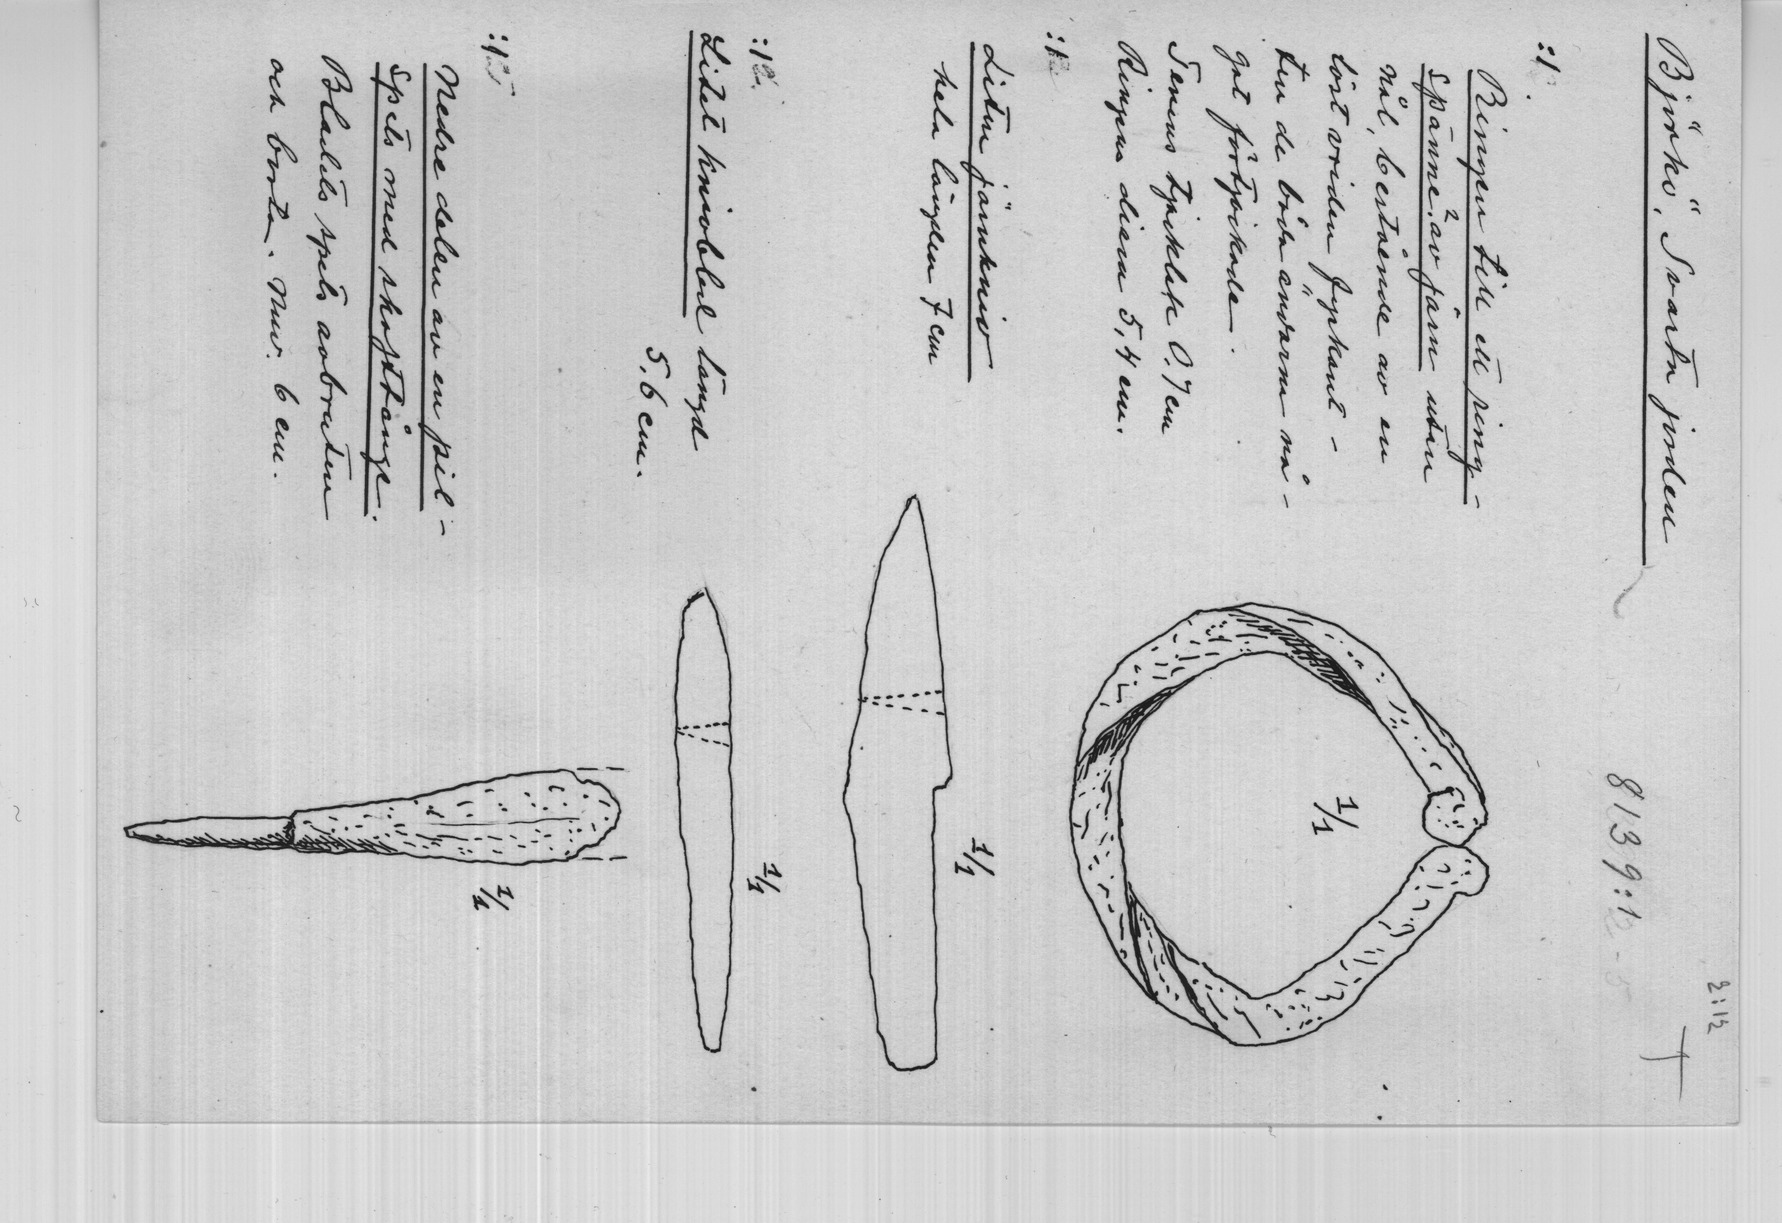 2:12
Björkö, Svarta jorden
8139:12-5
:1
Ringen till ett ring-
spänne? av järn utan
nål, bestående av en
löst vriden fyrkant-
ten de båda ändarna nå-
got förtjockade.
Tenens tjocklek 0.7 cm
Ringens diam 5,4 cm.
1/1
Liten järnkniv
hela längden 7 cm
1/1
Litet knivblad längd
5,6 cm.
1/1
Nedre delen av en pil-
spets med skafttånge.
Bladets spets avbruten
och borta. Nuv. 6 cm.
1/1